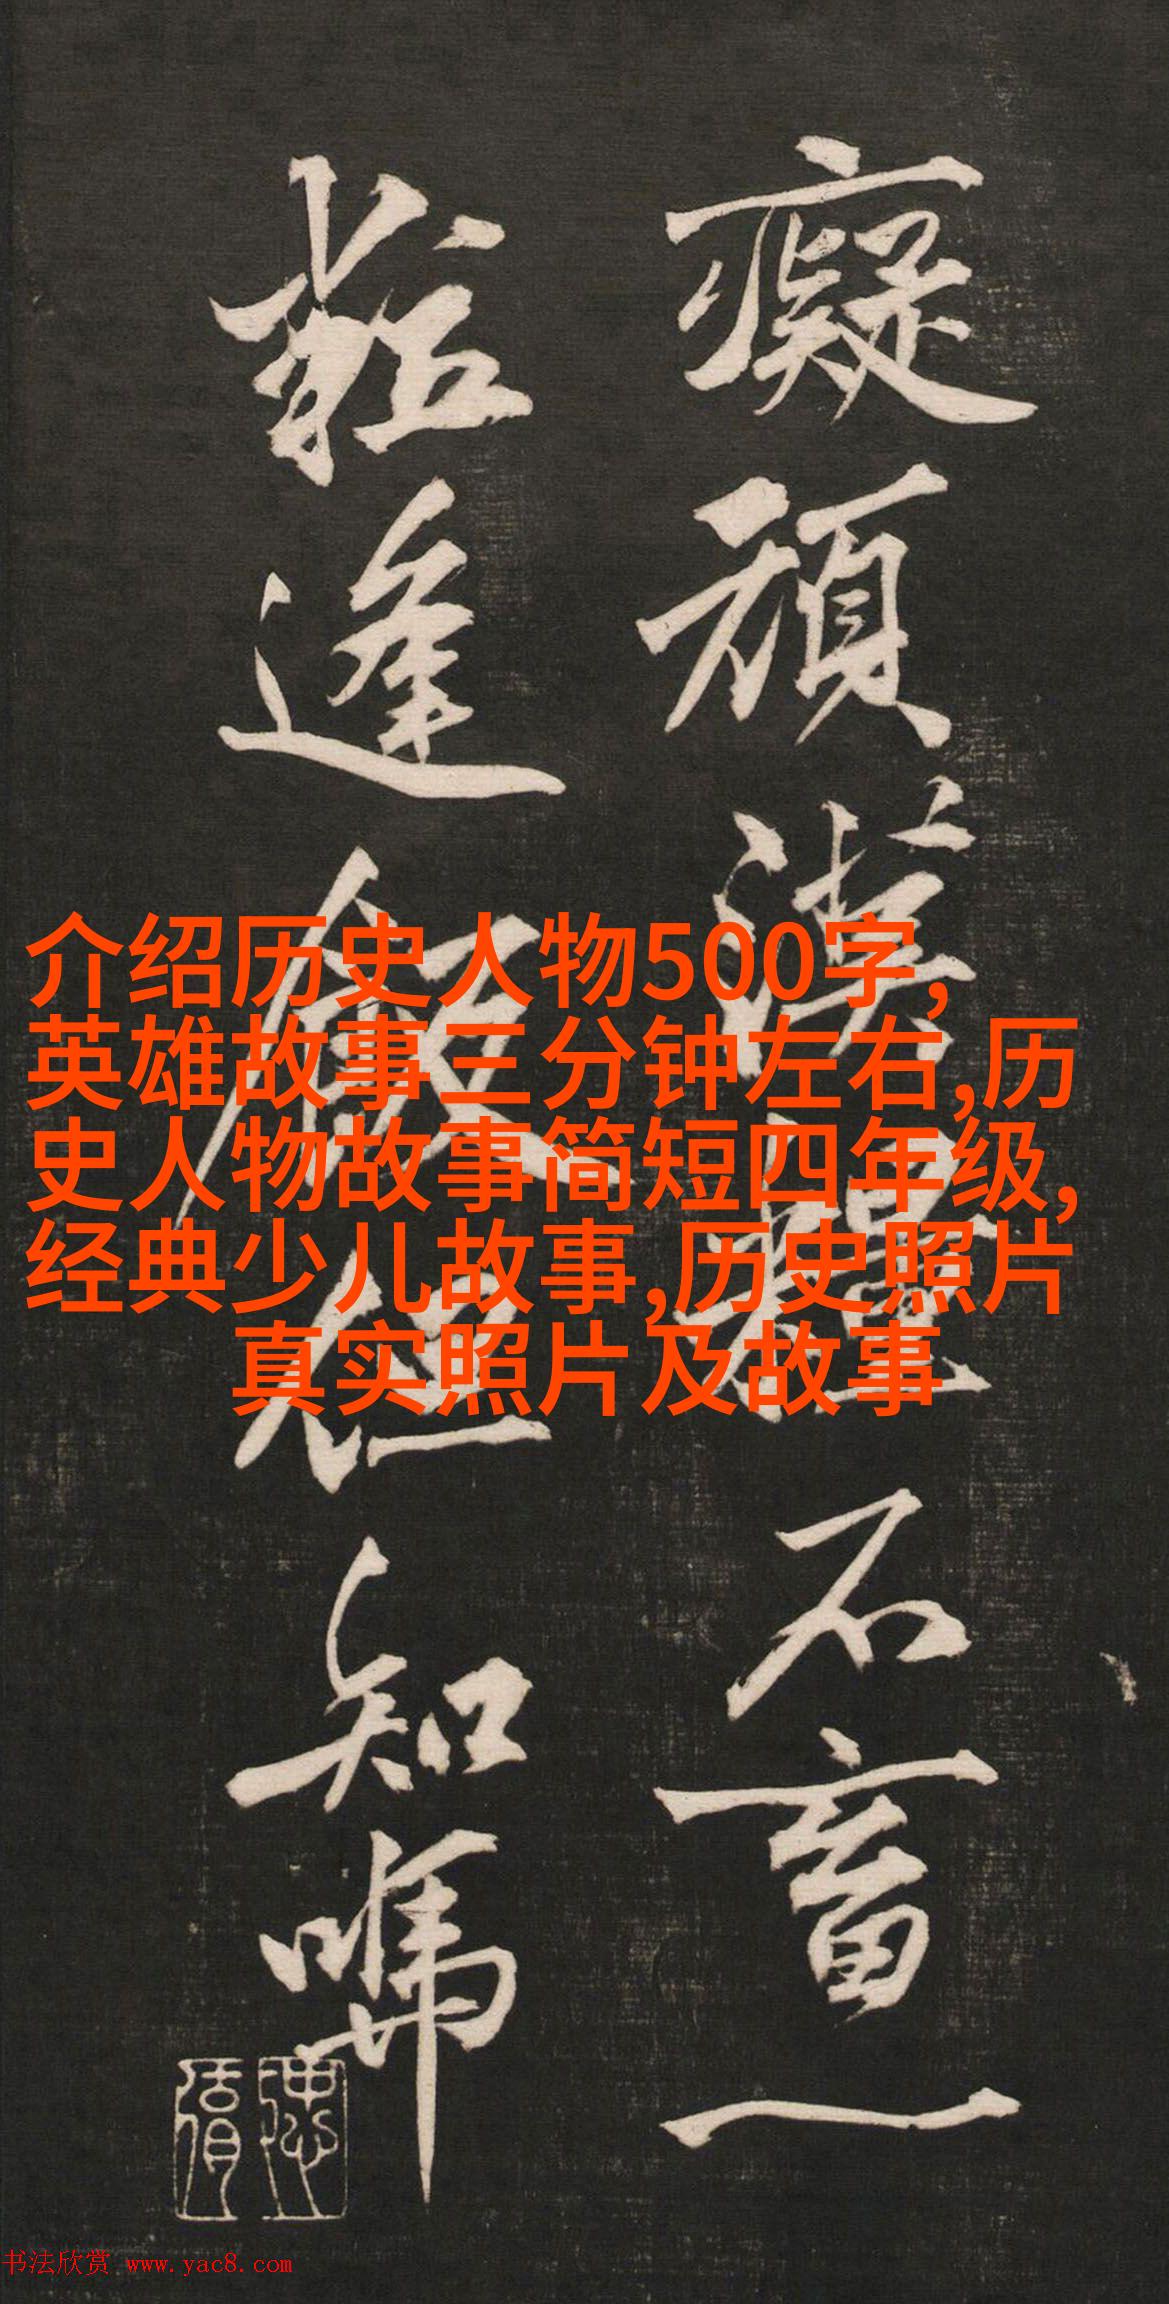 癡頑漢畜一
逢飯但知
介绍历史人物500字,
英雄故事三分钟左右,历
史人物故事简短四年级,
经典少儿故事,历史照片
真实照片及故事
书法欣赏 www.yac8.com